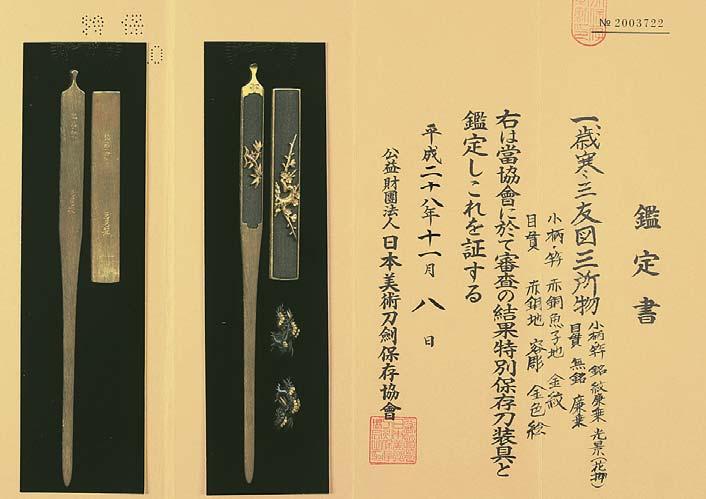 № 2003722
鑑定書
一、歳寒三友図三所物
小柄・笄 銘 紋廉乗 光晃(花押)
目貫 無銘 廉乗
小柄・笄 赤銅魚子地 金紋
目貫 赤銅地 容彫 金色絵
右は當協會に於て審査の結果特別保存刀装具と
鑑定しこれを証する
平成二十八年十一月八日
公益財團法人 日本美術刀劍保存協會